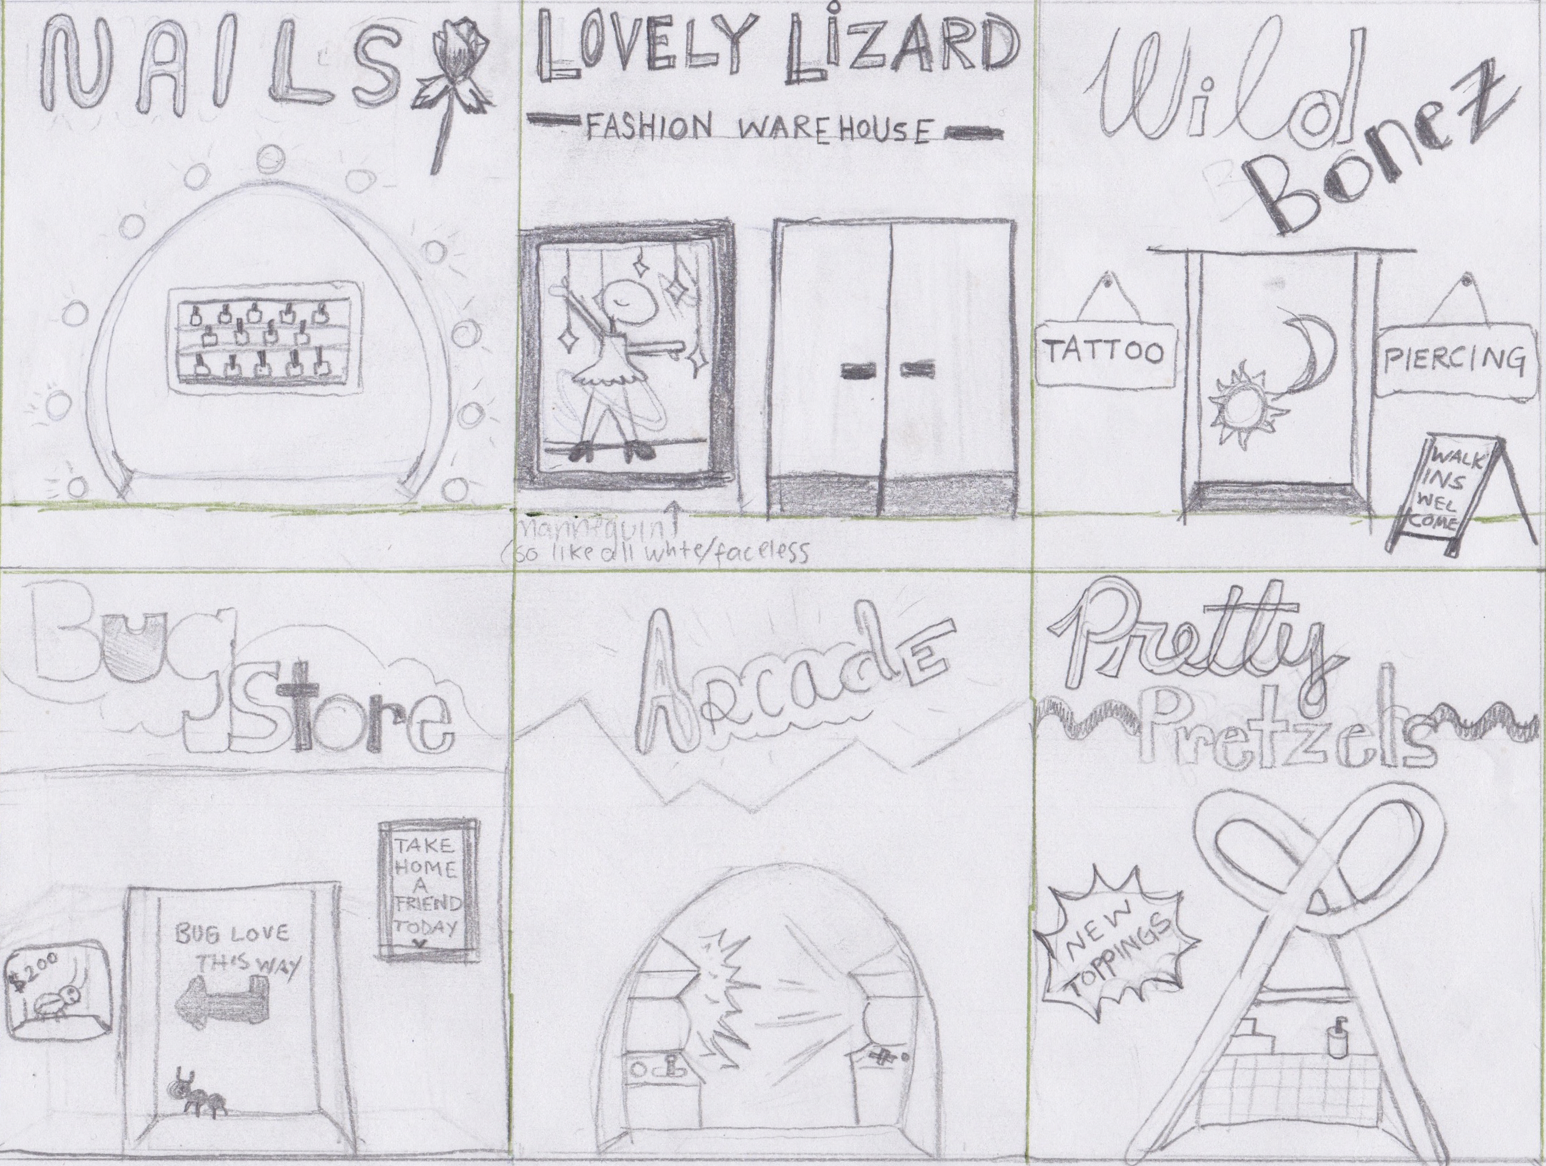 NAILS
LOVELY LiZARD
FASHION WAREHOUSE
mannequin
(so like all whte/faceless
Wild
BoneZ
TATTOO
PIERCING
WALK
INS
WEL
COME
Bug
Store
TAKE
HOME
A
FRIEND
TODAY
$200
BUG LOVE
THIS WAY
ArcadE
Pretty
Pretzels
NEW
TOPPINGS